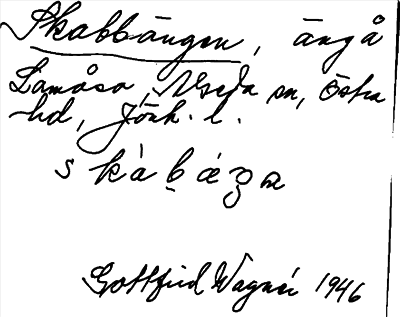 Skabbängen, äng å
Lamåsa, Nseda sn, Östra
hd, Jönk. l.
skàbæŋa
Gottfrid Wagnér 1946